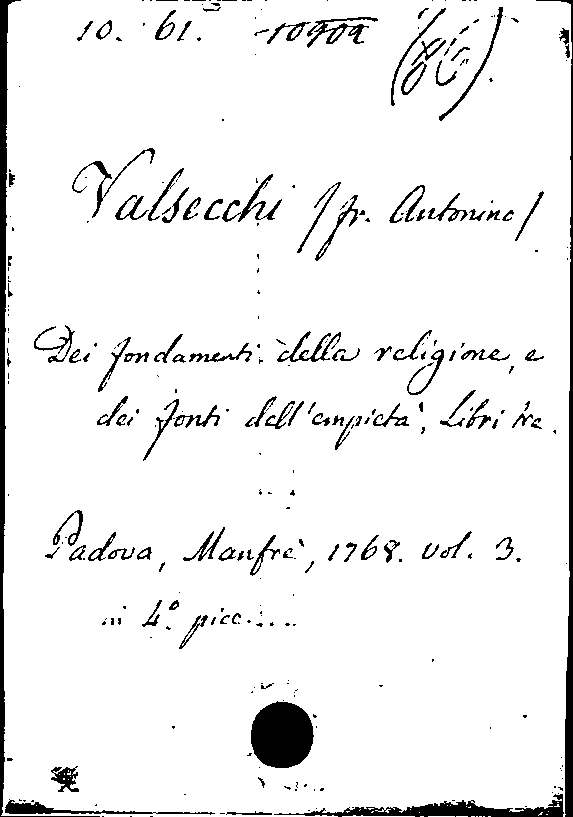 10. 61. 10909 (86).
Valsecchi / fr. Antonino /
Dei fondamenti della religione, e
dei fonti dell'empietà, Libri tre.
Padova, Manfrè, 1768. vol. 3.
in 4.° picc....